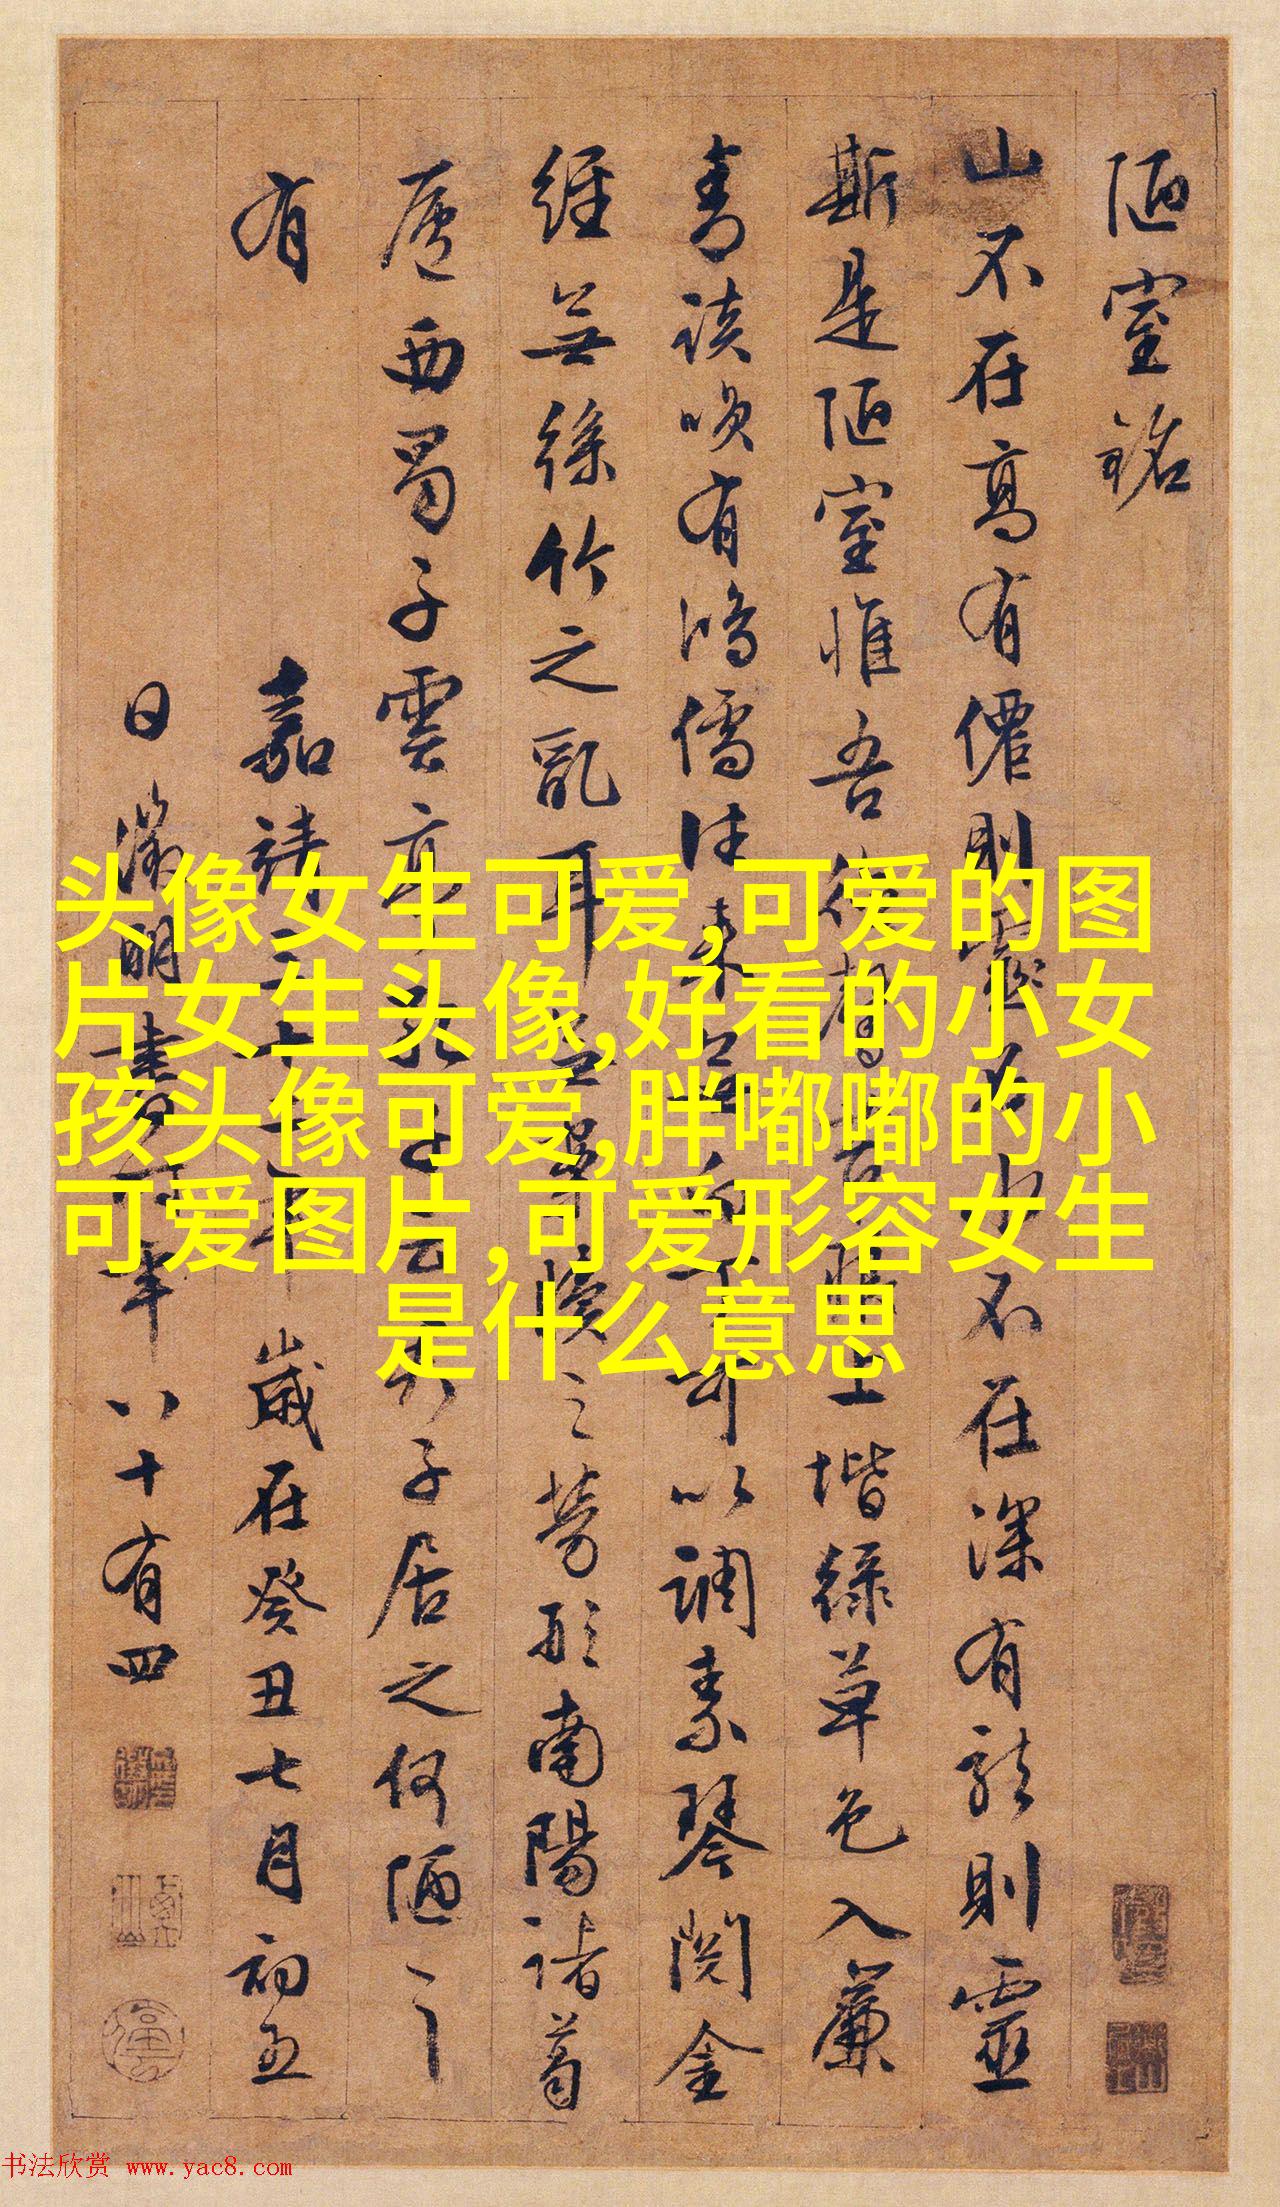 陋室銘
山不在高有僊則水不在深有龍則靈
斯是陋室惟吾德馨苔痕上堦綠草色入簾
青談咲有鴻儒往來無白丁可以調素琴閱金
經無絲竹之亂耳無案牘之勞形南陽諸葛
廬西蜀子雲亭孔子云君子居之何陋之
有
嘉靖三十二年歲在癸丑七月初五
日徵明書時年八十有四
头像女生可爱,可爱的图
片女生头像,好看的小女
孩头像可爱,胖嘟嘟的小
可爱图片,可爱形容女生
是什么意思
书法欣赏 www.yac8.com